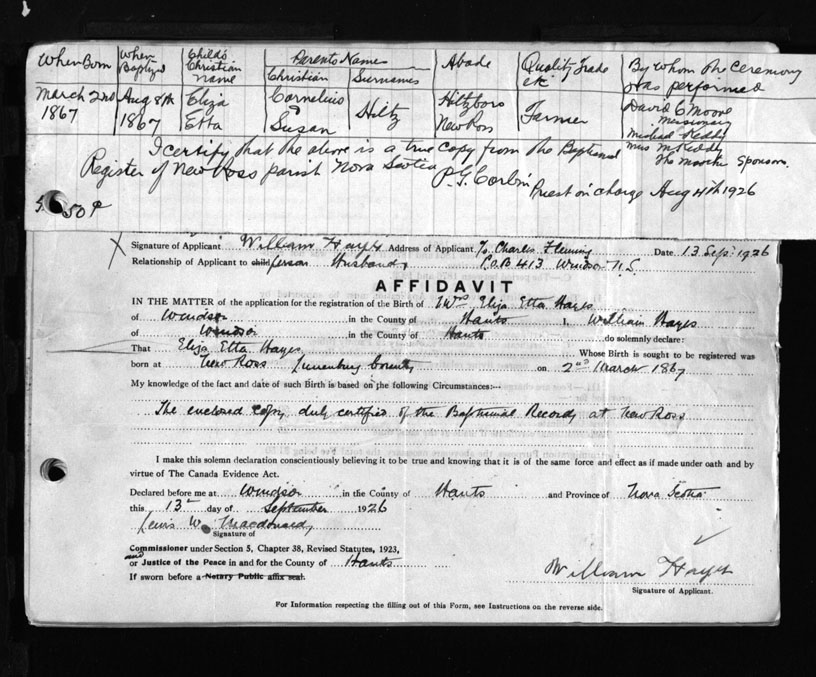 When Born When Baptized Child's Christian name Parents Names Christian Surnames Abode Quality, Trade etc By whom the Ceremony was performed
March 2nd 1867 Aug 8th 1867 Eliza Etta Cornelius & Susan Hiltz Hiltzboro New Ross Farmer David C Moore Missionary
Michael Keddy
Miss M Keddy
The Mother Sponsors.
I certify that the above is a true copy from the Baptismal
Register of New Ross parish Nova Scotia
P. G. Corbin
Priest in charge Aug 4th 1926
50¢
X Signature of Applicant William Hayes Address of Applicant c/o Charles Fleming Date 13 Sept. 1926
Relationship of Applicant to child person Husband P.O.B 413 Windsor N.S.
AFFIDAVIT
IN THE MATTER of the application for the registration of the Birth of Mrs Eliza Etta Hayes
of Windsor in the County of Hants I, William Hayes
of Windsor in the County of Hants do solemnly declare:
That Eliza Etta Hayes Whose Birth is sought to be registered was
born at New Ross Lunenburg County on 2nd March 1867
My knowledge of the fact and date of such Birth is based on the following Circumstances:—
The enclosed copy duly certified of the Baptismal Records at New Ross
I make this solemn declaration conscientiously believing it to be true and knowing that it is of the same force and effect as if made under oath and by
virtue of The Canada Evidence Act.
Declared before me at Windsor in the County of Hants and Province of Nova Scotia
this 13th day of September 1926
Lewis W. Macdonald
Signature of
Commissioner under Section 5, Chapter 38, Revised Statutes, 1923,
and
or Justice of the Peace in and for the County of Hants
If sworn before a Notary Public affix seal.
William Hayes
Signature of Applicant.
For Information respecting the filling out of this Form, see Instructions on the reverse side.